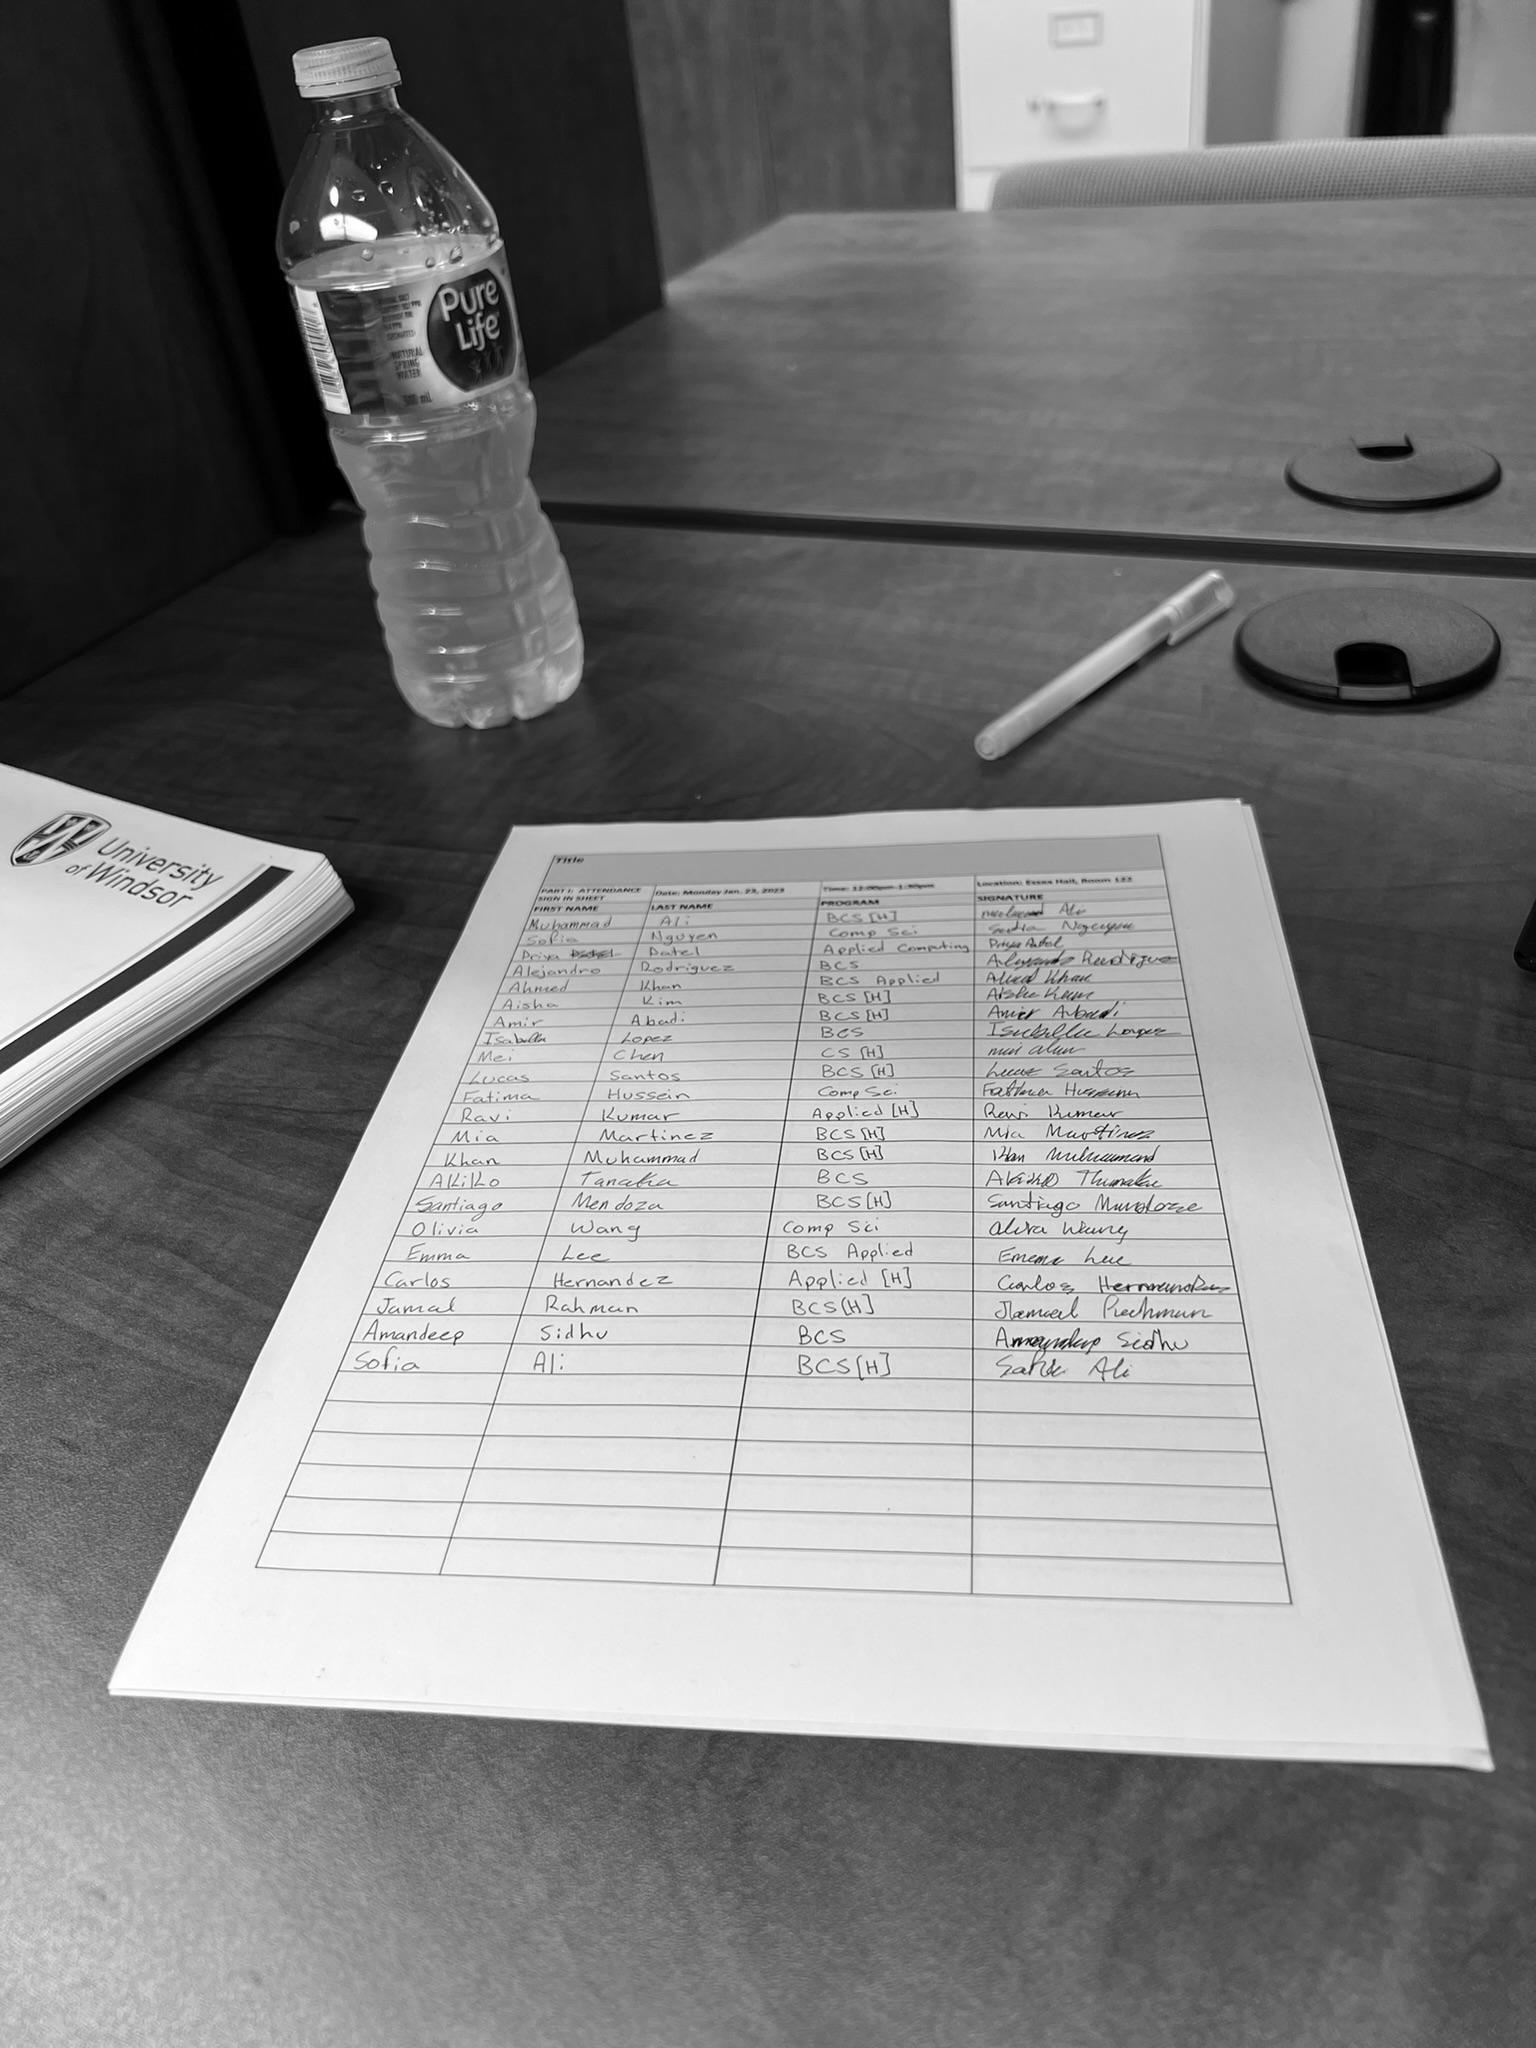 Pure
Life
NATURAL
SPRING
WATER
500 mL
University
of Windsor
Title
PART I: ATTENDANCE SIGN IN SHEET Date: Monday Jan. 23, 2023 Time: 12:00pm-1:30pm Location: Essex Hall, Room 122
FIRST NAME LAST NAME PROGRAM SIGNATURE
Muhammad Ali BCS [H] Ali
Sofia Nguyen Comp Sci Nguyen
Priya Patel Applied Computing Priya Patel
Alejandro Rodriguez BCS Alejandro Rodriguez
Ahmed Khan BCS Applied Ahmed Khan
Aisha Kim BCS [H] Aisha Kim
Amir Abadi BCS [H] Amir Abadi
Isabella Lopez BCS Isabella Lopez
Mei Chen CS [H] mei chen
Lucas Santos BCS [H] Lucas Santos
Fatima Hussein Comp Sci Fatima Hussein
Ravi Kumar Applied [H] Ravi Kumar
Mia Martinez BCS [H] Mia Martinez
Khan Muhammad BCS [H] Khan Muhammad
AKiKo Tanaka BCS Akiko Tanaka
Santiago Mendoza BCS [H] Santiago Mendoza
Olivia Wang Comp Sci Olivia Wang
Emma Lee BCS Applied Emma Lee
Carlos Hernandez Applied [H] Carlos Hernandez
Jamal Rahman BCS [H] Jamal Rahman
Amandeep Sidhu BCS Amandeep Sidhu
Sofia Ali BCS [H] Sofia Ali